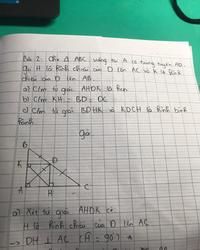 Bài 2: Cho Δ ABC vuông tại A có trung tuyến AD.
Gọi H là hình chiếu của D lên AC và K là hình
chiếu của D lên AB.
a) C/m tứ giác AHDK là hcn
b) C/m KH = BD = DC
c) C/m tứ giác BDHK và KDCH là hình bình
hành.
giải
B
K
D
A
H
C
a) Xét tứ giác AHDK có
H là hình chiếu của D lên AC
→ DH ⊥ AC (Ĥ = 90°)